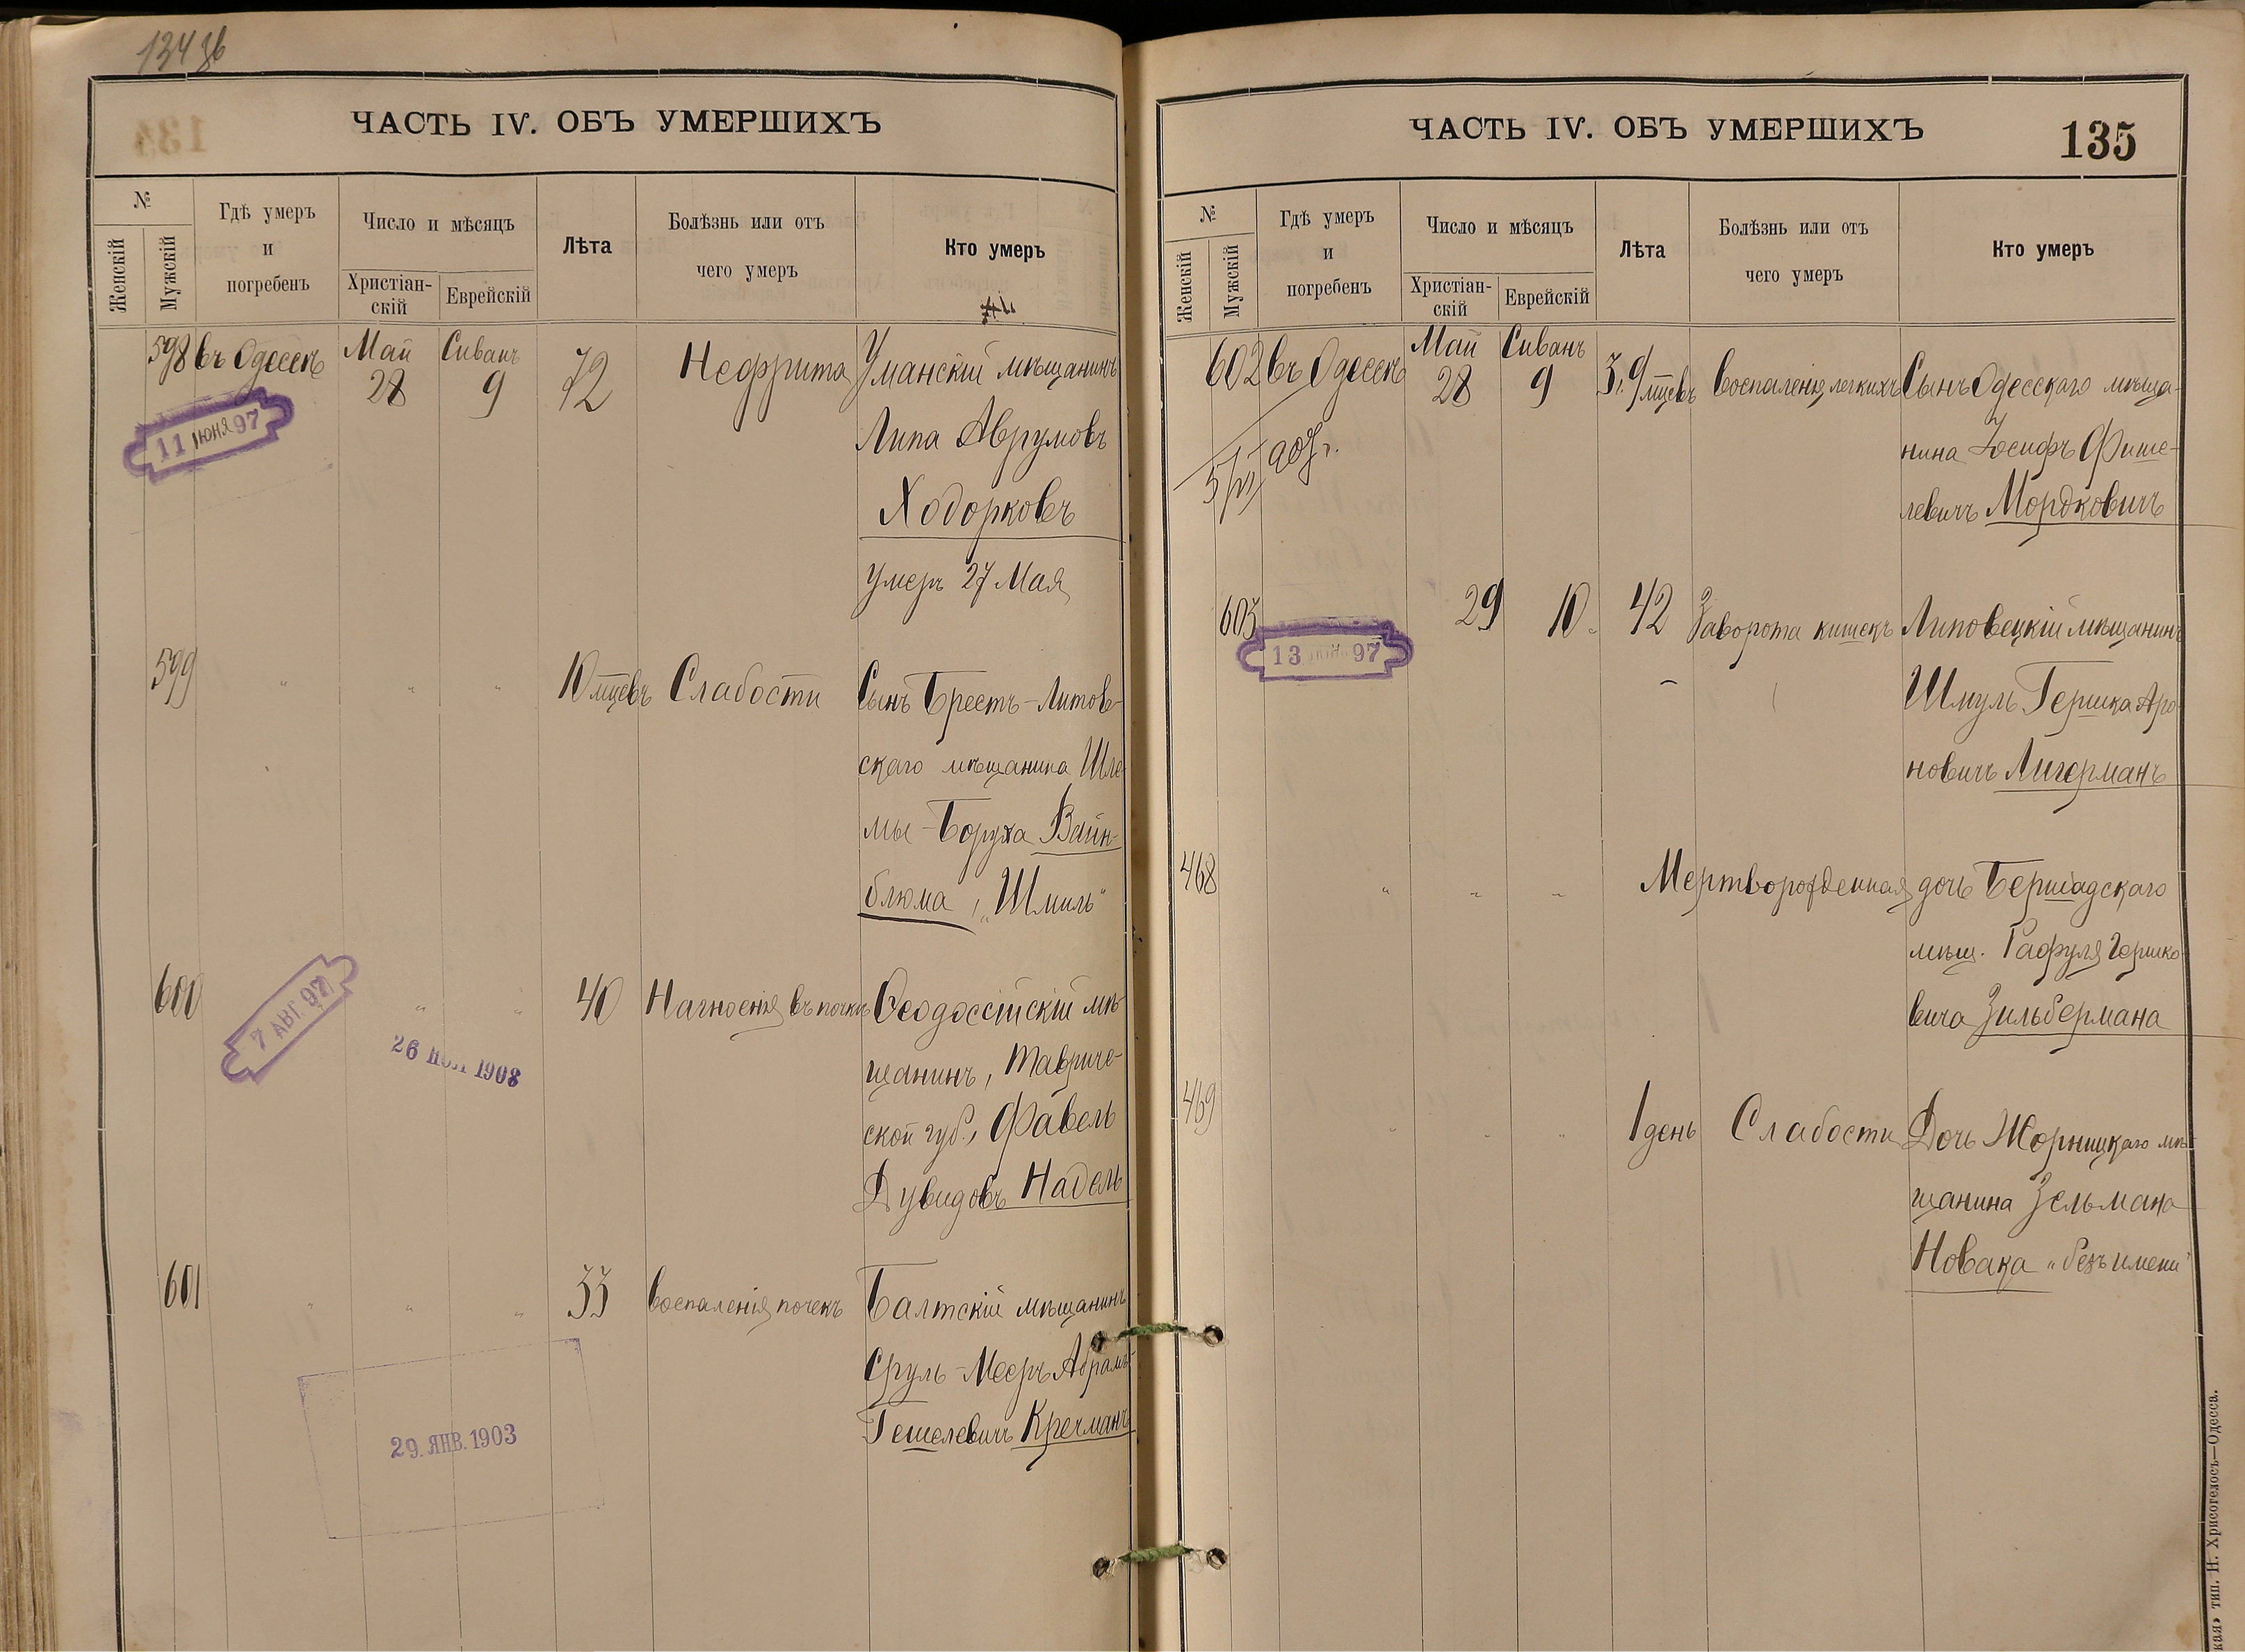 134 об
ЧАСТЬ IV. ОБЪ УМЕРШИХЪ
№
Женскій
Мужскій
Гдѣ умеръ
и
погребенъ
Число и мѣсяцъ
Христіан-
скій
Еврейскій
Лѣта
Болѣзнь или отъ
чего умеръ
Кто умеръ
598 въ Одессѣ Май 28 Сиванъ 9 72 Нефрита Уманскій мѣщанинъ
11 ІЮНЯ 97
Липа Аврумовъ
Ходорковъ
умеръ 27 Мая
599 " " " 10 мцевъ Слабости Сынъ Брестъ-Литов-
скаго мѣщанина Шле-
мы-Боруха Вайн-
блюма, „Шмиль“
600 " " 40 Нагноенія въ почкѣ Ѳеодоссійскій мѣ-
7 АВГ. 97
26 НОЯ 1908
щанинъ, Тавриче-
ской губ., Фавель
Дувидовъ Надель
601 " " " 33 Воспаленія почекъ Балтскій мѣщанинъ
Сруль-Мееръ Абрамъ-
Гешелевичъ Кречманъ
29. ЯНВ. 1903
ЧАСТЬ IV. ОБЪ УМЕРШИХЪ
135
№
Женскій
Мужскій
Гдѣ умеръ
и
погребенъ
Число и мѣсяцъ
Христіан-
скій
Еврейскій
Лѣта
Болѣзнь или отъ
чего умеръ
Кто умеръ
602 въ Одессѣ Май 28 Сиванъ 9 3 г. 9 мцевъ Воспаленія легкихъ Сынъ Одесскаго мѣща-
5/VI 907 г.
нина Іосифъ Фише-
левичъ Мордковичъ
603 29 10 42 Заворота кишекъ Липовецкій мѣщанинъ
13 ІЮНЯ 97
Шмуль Гершка Аро-
новичъ Лигерманъ
468 " " " Мертворожденная дочь Бершадскаго
мѣщ. Рафуля Гершко-
вича Зильбермана
469 " " " 1 день Слабости Дочь Жорнищкаго мѣ-
щанина Зельмана
Новака „безъ имени“
кая» тип. Н. Хрисогелосъ—Одесса.